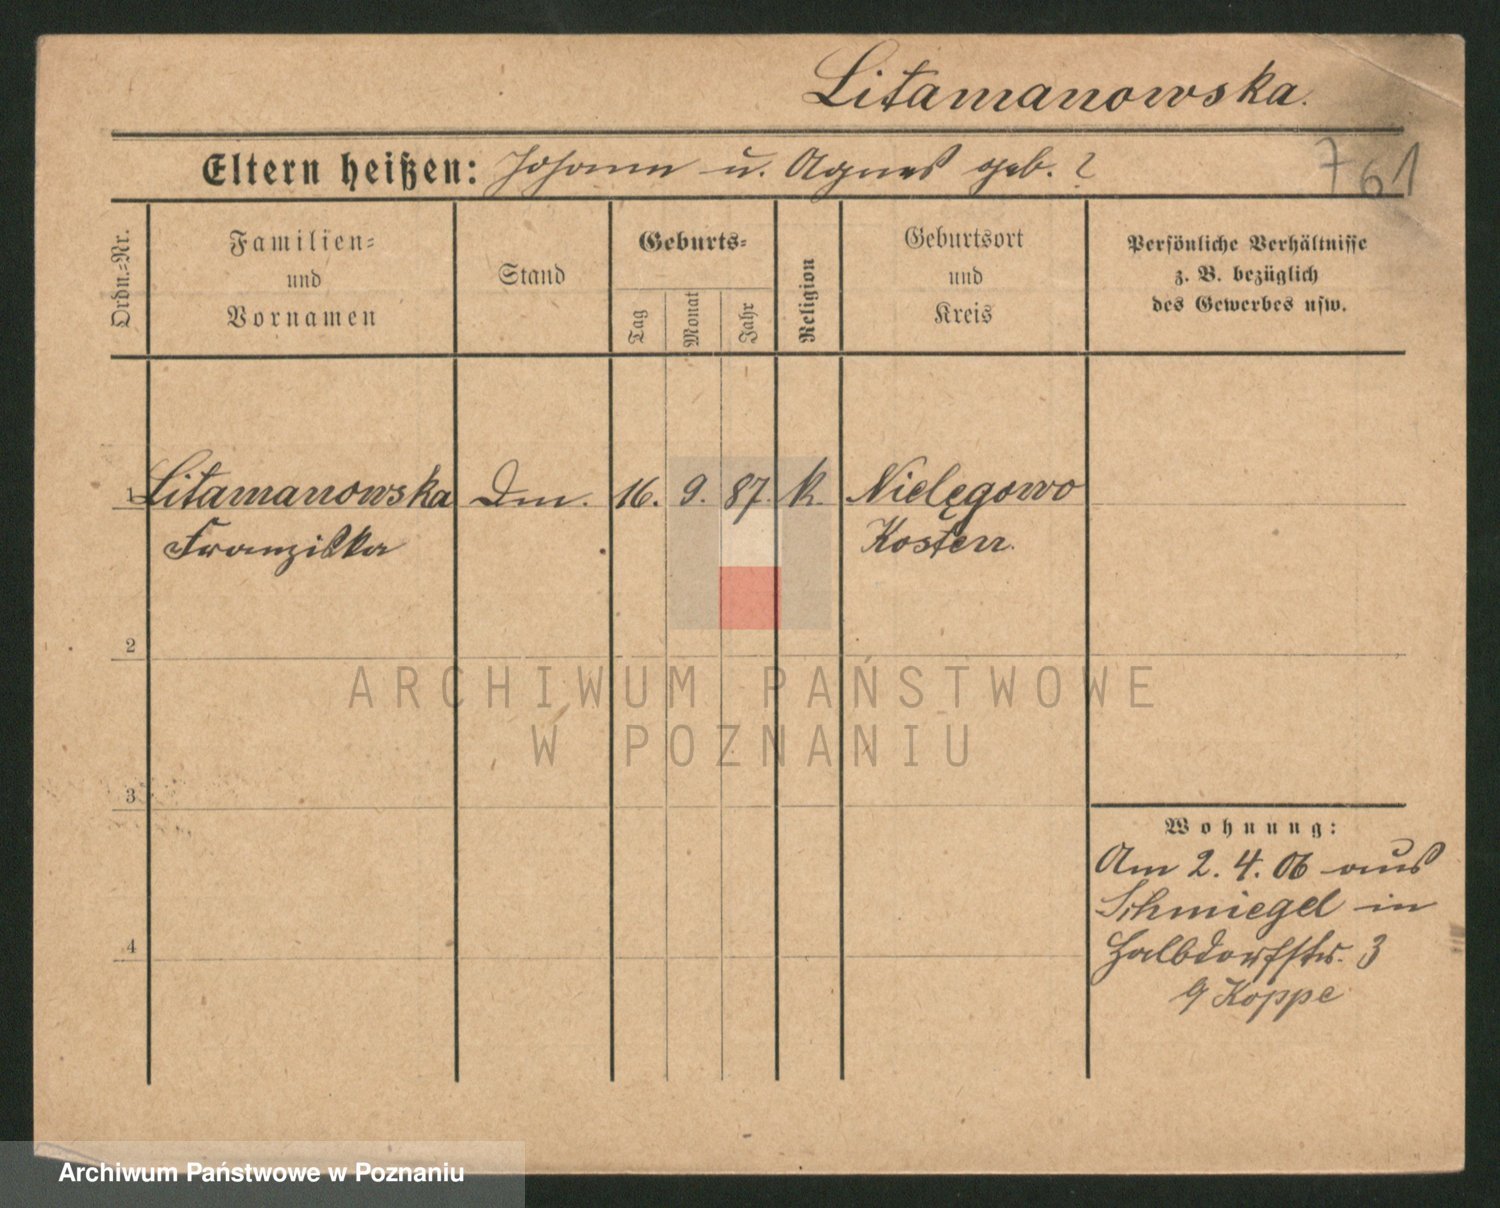 Litamanowska.
Eltern heißen: Johann u. Agnes geb. ?
761
Ordn.-Nr.
Familien-
und
Vornamen
Stand
Geburts-
Tag
Monat
Jahr
Religion
Geburtsort
und
Kreis
Persönliche Verhältnisse
z. B. bezüglich
des Gewerbes usw.
1 Litamanowska Dm. 16. 9. 87. k. Nielęgowo
Franziska Kosten.
2
ARCHIWUM PAŃSTWOWE
W POZNANIU
3
Wohnung:
Am 2. 4. 06 aus
Schmiegel in
4
Halbdorfstr. 3
Koppe
Archiwum Państwowe w Poznaniu